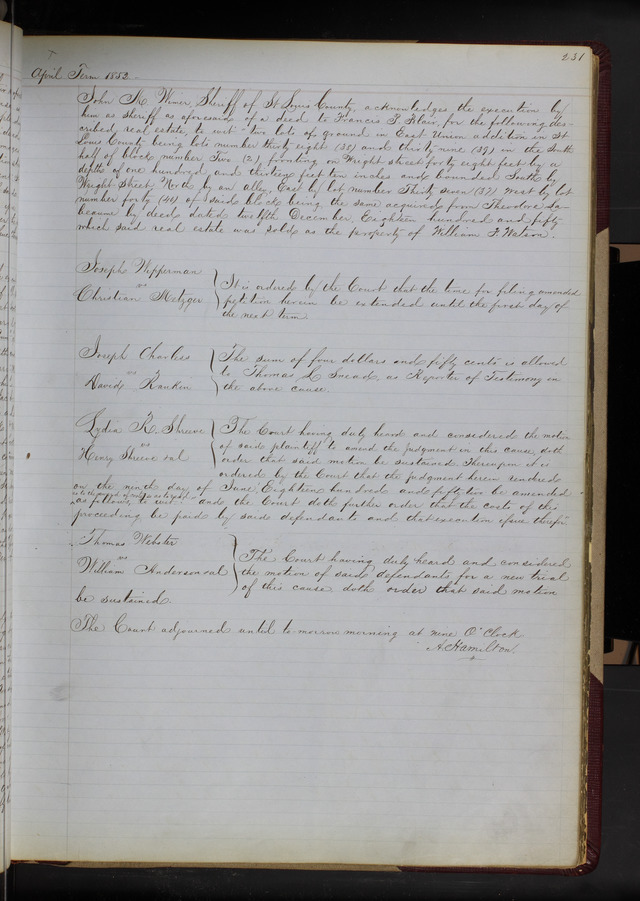 231
April Term 1852
John M. Wimer, Sheriff of St Louis County, acknowledges the execution by
him as sheriff as aforesaid of a deed to Francis P. Blair, for the following des-
cribed real estate, to wit: two lots of ground in East Union addition in St
Louis County being lots number thirty eight (38) and thirty-nine (39) in the South
half of block number Two (2), fronting on Wright street forty eight feet by a
depth of one hundred and thirteen feet ten inches and bounded South by
Wright Street, North by an alley, East by lot number Thirty seven (37) West by lot
number forty (40) of said block being the same acquired from Theodore La-
beaume by deed dated twelfth December, Eighteen hundred and fifty
which said real estate was sold as the property of William F. Watson.
Joseph Wipperman
vs
Christian Metzger
It is ordered by the Court that the time for filing amended
petition herein be extended until the first day of
the next term
Joseph Charless
vs
David Rankin
The sum of four dollars and fifty cents is allowed
to Thomas L Snead, as Reporter of Testimony in
the above cause.
Lydia R. Shreeve
vs
Henry Shreeve et al
The Court having duly heard and considered the motion
of said plaintiff to amend the judgment in this cause, doth
order that said motion be sustained. Thereupon it is
ordered by the Court that the judgment herein rendered
on the ninth day of June Eighteen hundred and fifty two be amended
as follows, to wit: and the Court doth further order that the costs of this
proceeding be paid by said defendants and that execution issue therefor
Thomas Webster
vs
William Anderson et al
The Court having duly heard and considered
the motion of said defendants for a new trial
of this cause doth order that said motion
be sustained.
The Court adjourned until to-morrow morning at nine O'Clock
A. Hamilton.